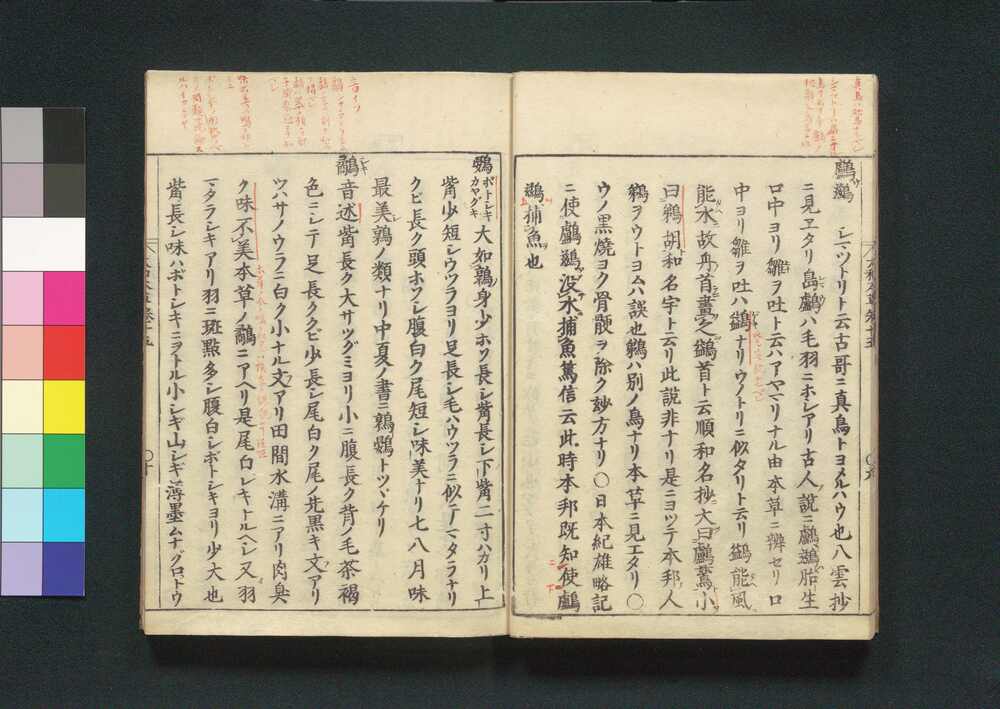 鸕鷀 シマツトリト云古哥ニ真鳥トヨメルハウ也八雲抄
ニ見エタリ島鸕ハ毛羽ニホシアリ古人ノ説ニ鸕鷀胎生
口中ヨリ雛ヲ吐ト云ハアヤマリナル由本草ニ辨セリ口
中ヨリ雛ヲ吐ハ鷁ナリウノトリニ似タリト云リ鷁能風
能水故舟首畫之鷁首ト云順和名抄大曰鸕鷀小
曰鵜胡和名字ト云リ此説非ナリ是ニヨツテ本邦人
鵜ヲウトヨムハ誤也鵜ハ別ノ鳥ナリ本草ニ見エタリ○
ウノ黒焼ヨク骨骾ヲ除ク妙方ナリ○日本紀雄略記
ニ使鸕鷀没水捕魚篤信云此時本邦既知使鸕
鷀捕魚也
鷃 ボトシギ カヤグキ 大如鶉身少ホソ長シ觜長シ下觜二寸ハカリ上
觜少短シウツラヨリ足長シ毛ハウツラニ似テマタラナリ
クビ長ク頭ホソシ腹白ク尾短シ味美ナリ七八月味
最美鶉ノ類ナリ中夏ノ書ニ鶉鷃トツヾケリ
鷸 シギ 音述觜長ク大サツグミヨリ小ニ腹長ク背ノ毛茶褐
色ニシテ足長ククビ少長シ尾白ク尾ノ先黒キ文アリ
ツハサノウラニ白ク小ナル文アリ田間水溝ニアリ肉臭
ク味不美本草ノ鷸ニアヘリ是尾白シギトルヘシ又羽
マタラシキアリ羽ニ斑點多シ腹白シボトシキヨリ少大也
觜長シ味ハボトシキニヲトル小シギ山シギ薄墨ムナグロトウ